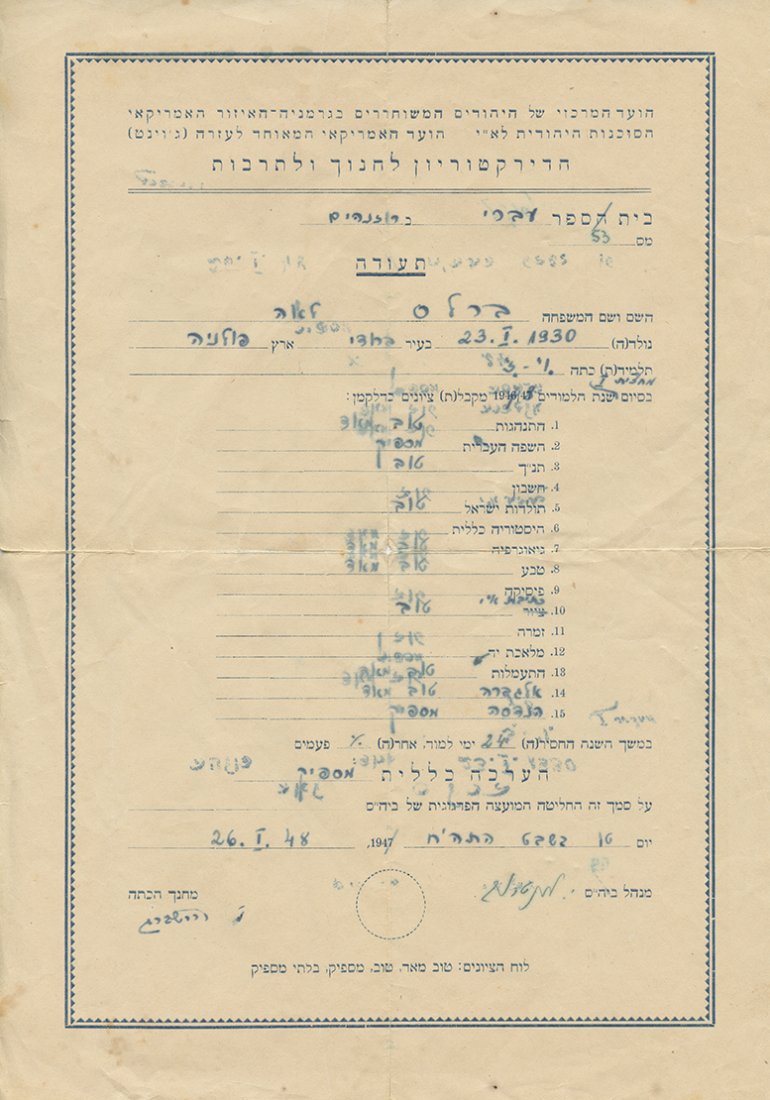 הועד המרכזי של היהודים המשוחררים בגרמניה-האיזור האמריקאי
הסוכנות היהודית לא"י הועד האמריקאי המאוחד לעזרה (ג'וינט)
הדירקטוריון לחנוך ולתרבות
בית הספר עברי ב רוזנהים
מס 53
תעודה
השם ושם המשפחה ברלס לאה
נולד(ה) 23. I. 1930 בעיר ארץ פולניה
תלמיד(ת) כתה ו'-ז'.
בסיום מחצית שנת הלמודים 1946/47 מקבל(ת) ציונים כדלקמן:
1. התנהגות טוב מאוד
2. השפה העברית מספיק
3. תנ"ך טוב
4. חשבון
5. תולדות ישראל טוב
6. היסטוריה כללית
7. גיאוגרפיה
8. טבע טוב מאד
9. פיסיקה
10. ציור ידיעת א"י טוב
11. זמרה
12. מלאכת יד
13. התעמלות טוב מאד
14. אלגברה טוב מאד
15. הנדסה מספיק
במשך השנה החסיר(ה) 24 ימי למוד, אחר(ה) פעמים
הערכה כללית מספיק
על סמך זה החליטה המועצה הפדגוגית של ביה"ס
יום טו בשבט התש"ח 1947, 26. I. 48
מנהל ביה"ס
מחנך הכתה
לוח הציונים: טוב מאד, טוב, מספיק, בלתי מספיק